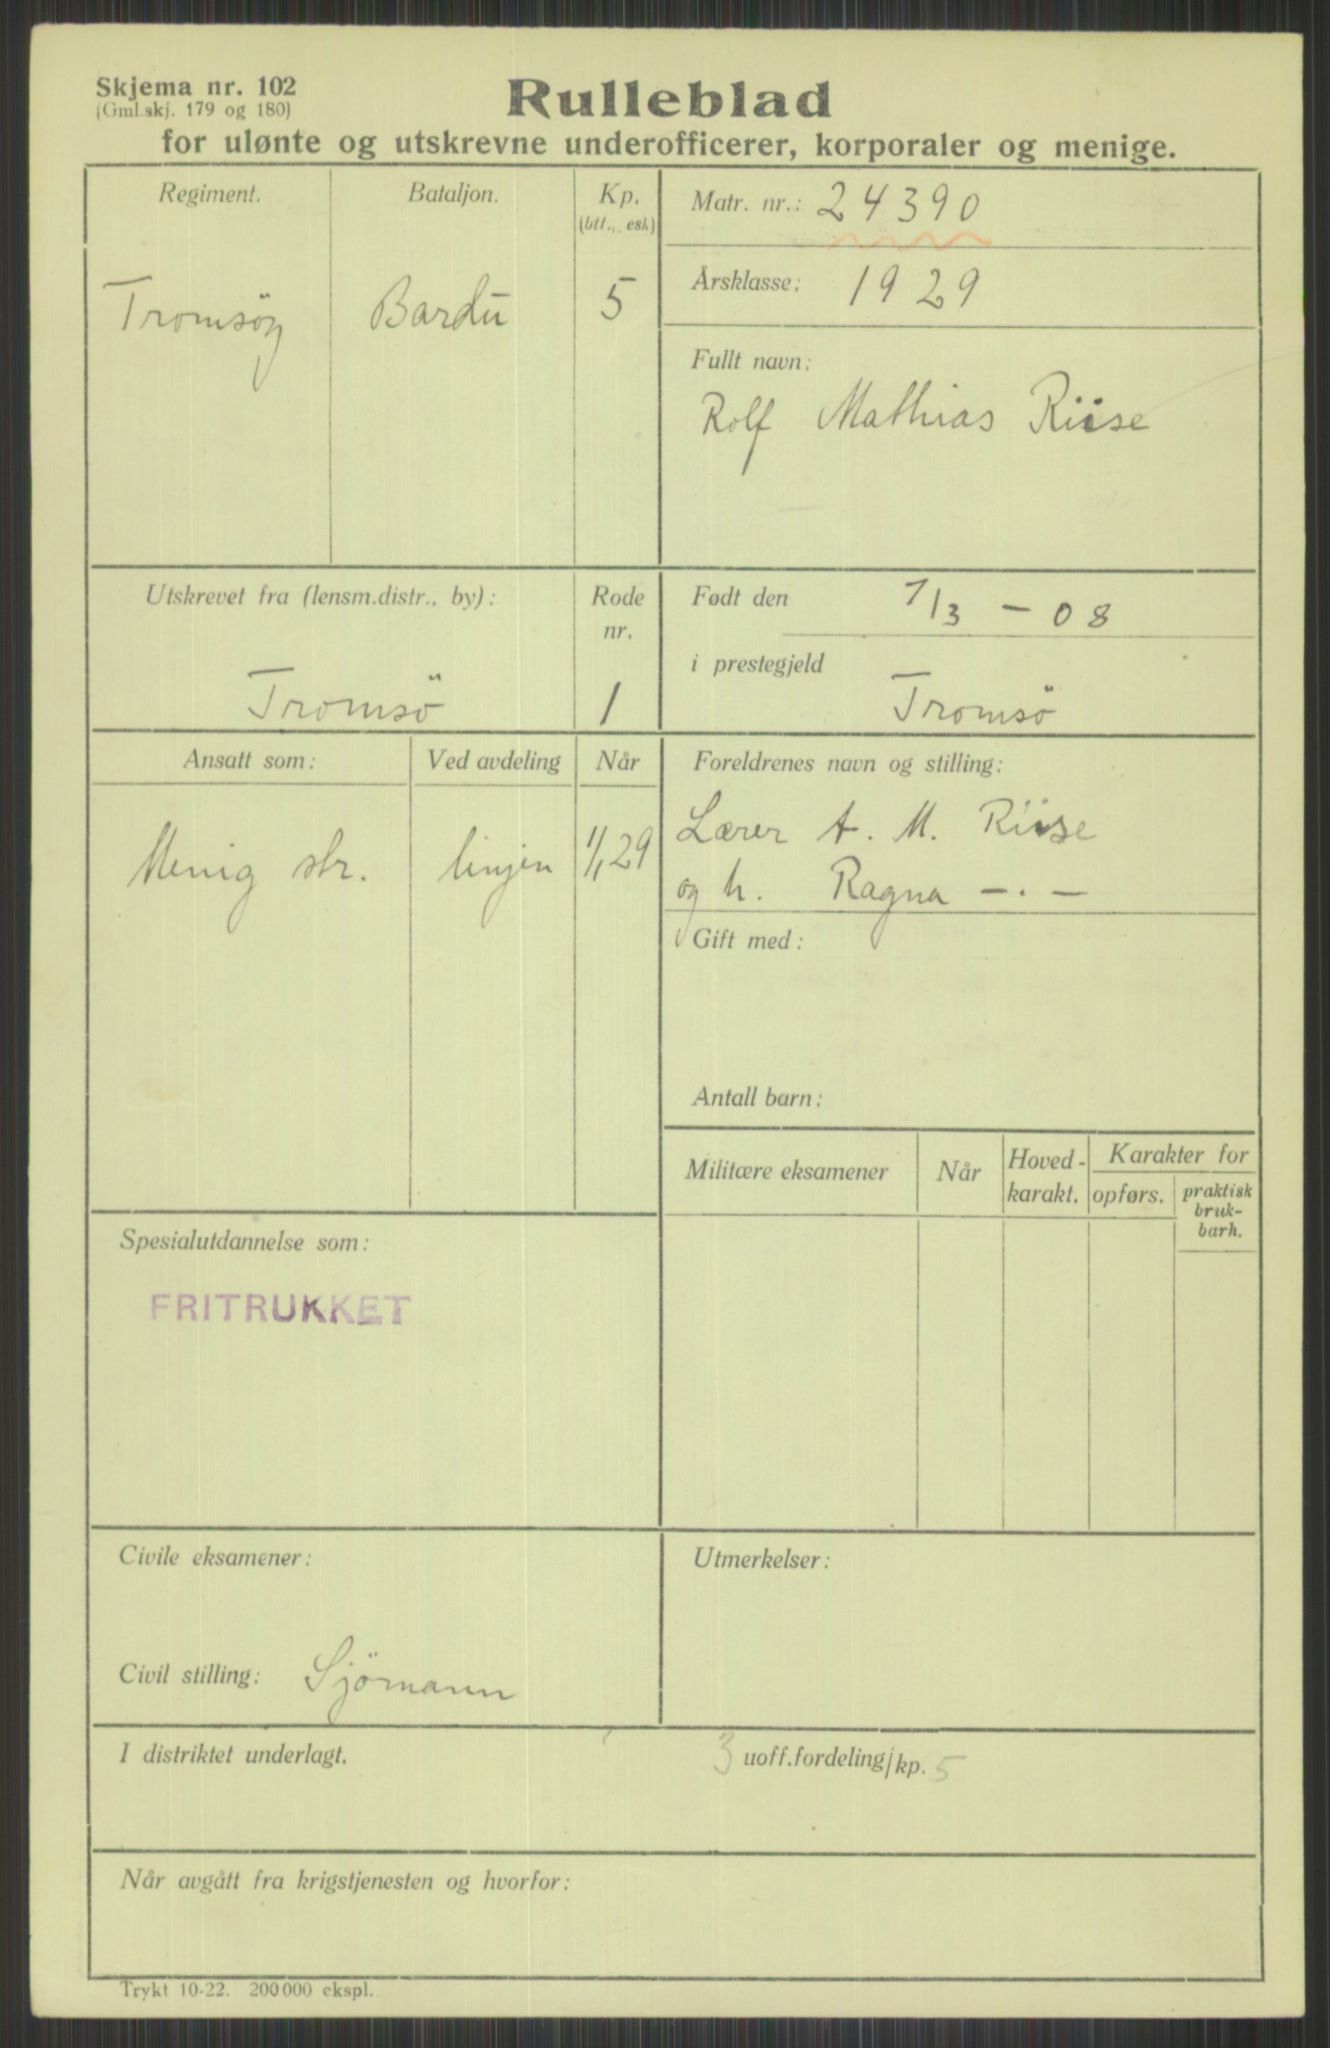 Skjema nr. 102
(Gml.skj. 179 og 180)
Rulleblad
for ulønte og utskrevne underofficerer, korporaler og menige.
Regiment.
Tromsøy
Bataljon.
Bardu
Kp.
(btt., esk)
5
Matr. nr.: 24390
Årsklasse: 1929
Fullt navn:
Rolf Mathias Riise
Utskrevet fra (lensm.distr., by):
Tromsö
Rode
nr.
1
Født den 7/3 - 08
i prestegjeld
Tromsö
Ansatt som:
Menig str.
Ved avdeling
linjen
Når
1/1 29
Foreldrenes navn og stilling:
Lærer A. M. Riise
og h. Ragna -.-
Gift med:
Antall barn:
Militære eksamener
Når
Hoved-
karakt.
Karakter for
opførs.
praktisk
bruk-
barh.
Spesialutdannelse som:
FRITRUKKET
Civile eksamener:
Civil stilling: Sjömann
Utmerkelser:
I distriktet underlagt.
3 uoff.fordeling/kp. 5
Når avgått fra krigstjenesten og hvorfor:
Trykt 10-22. 200 000 ekspl.